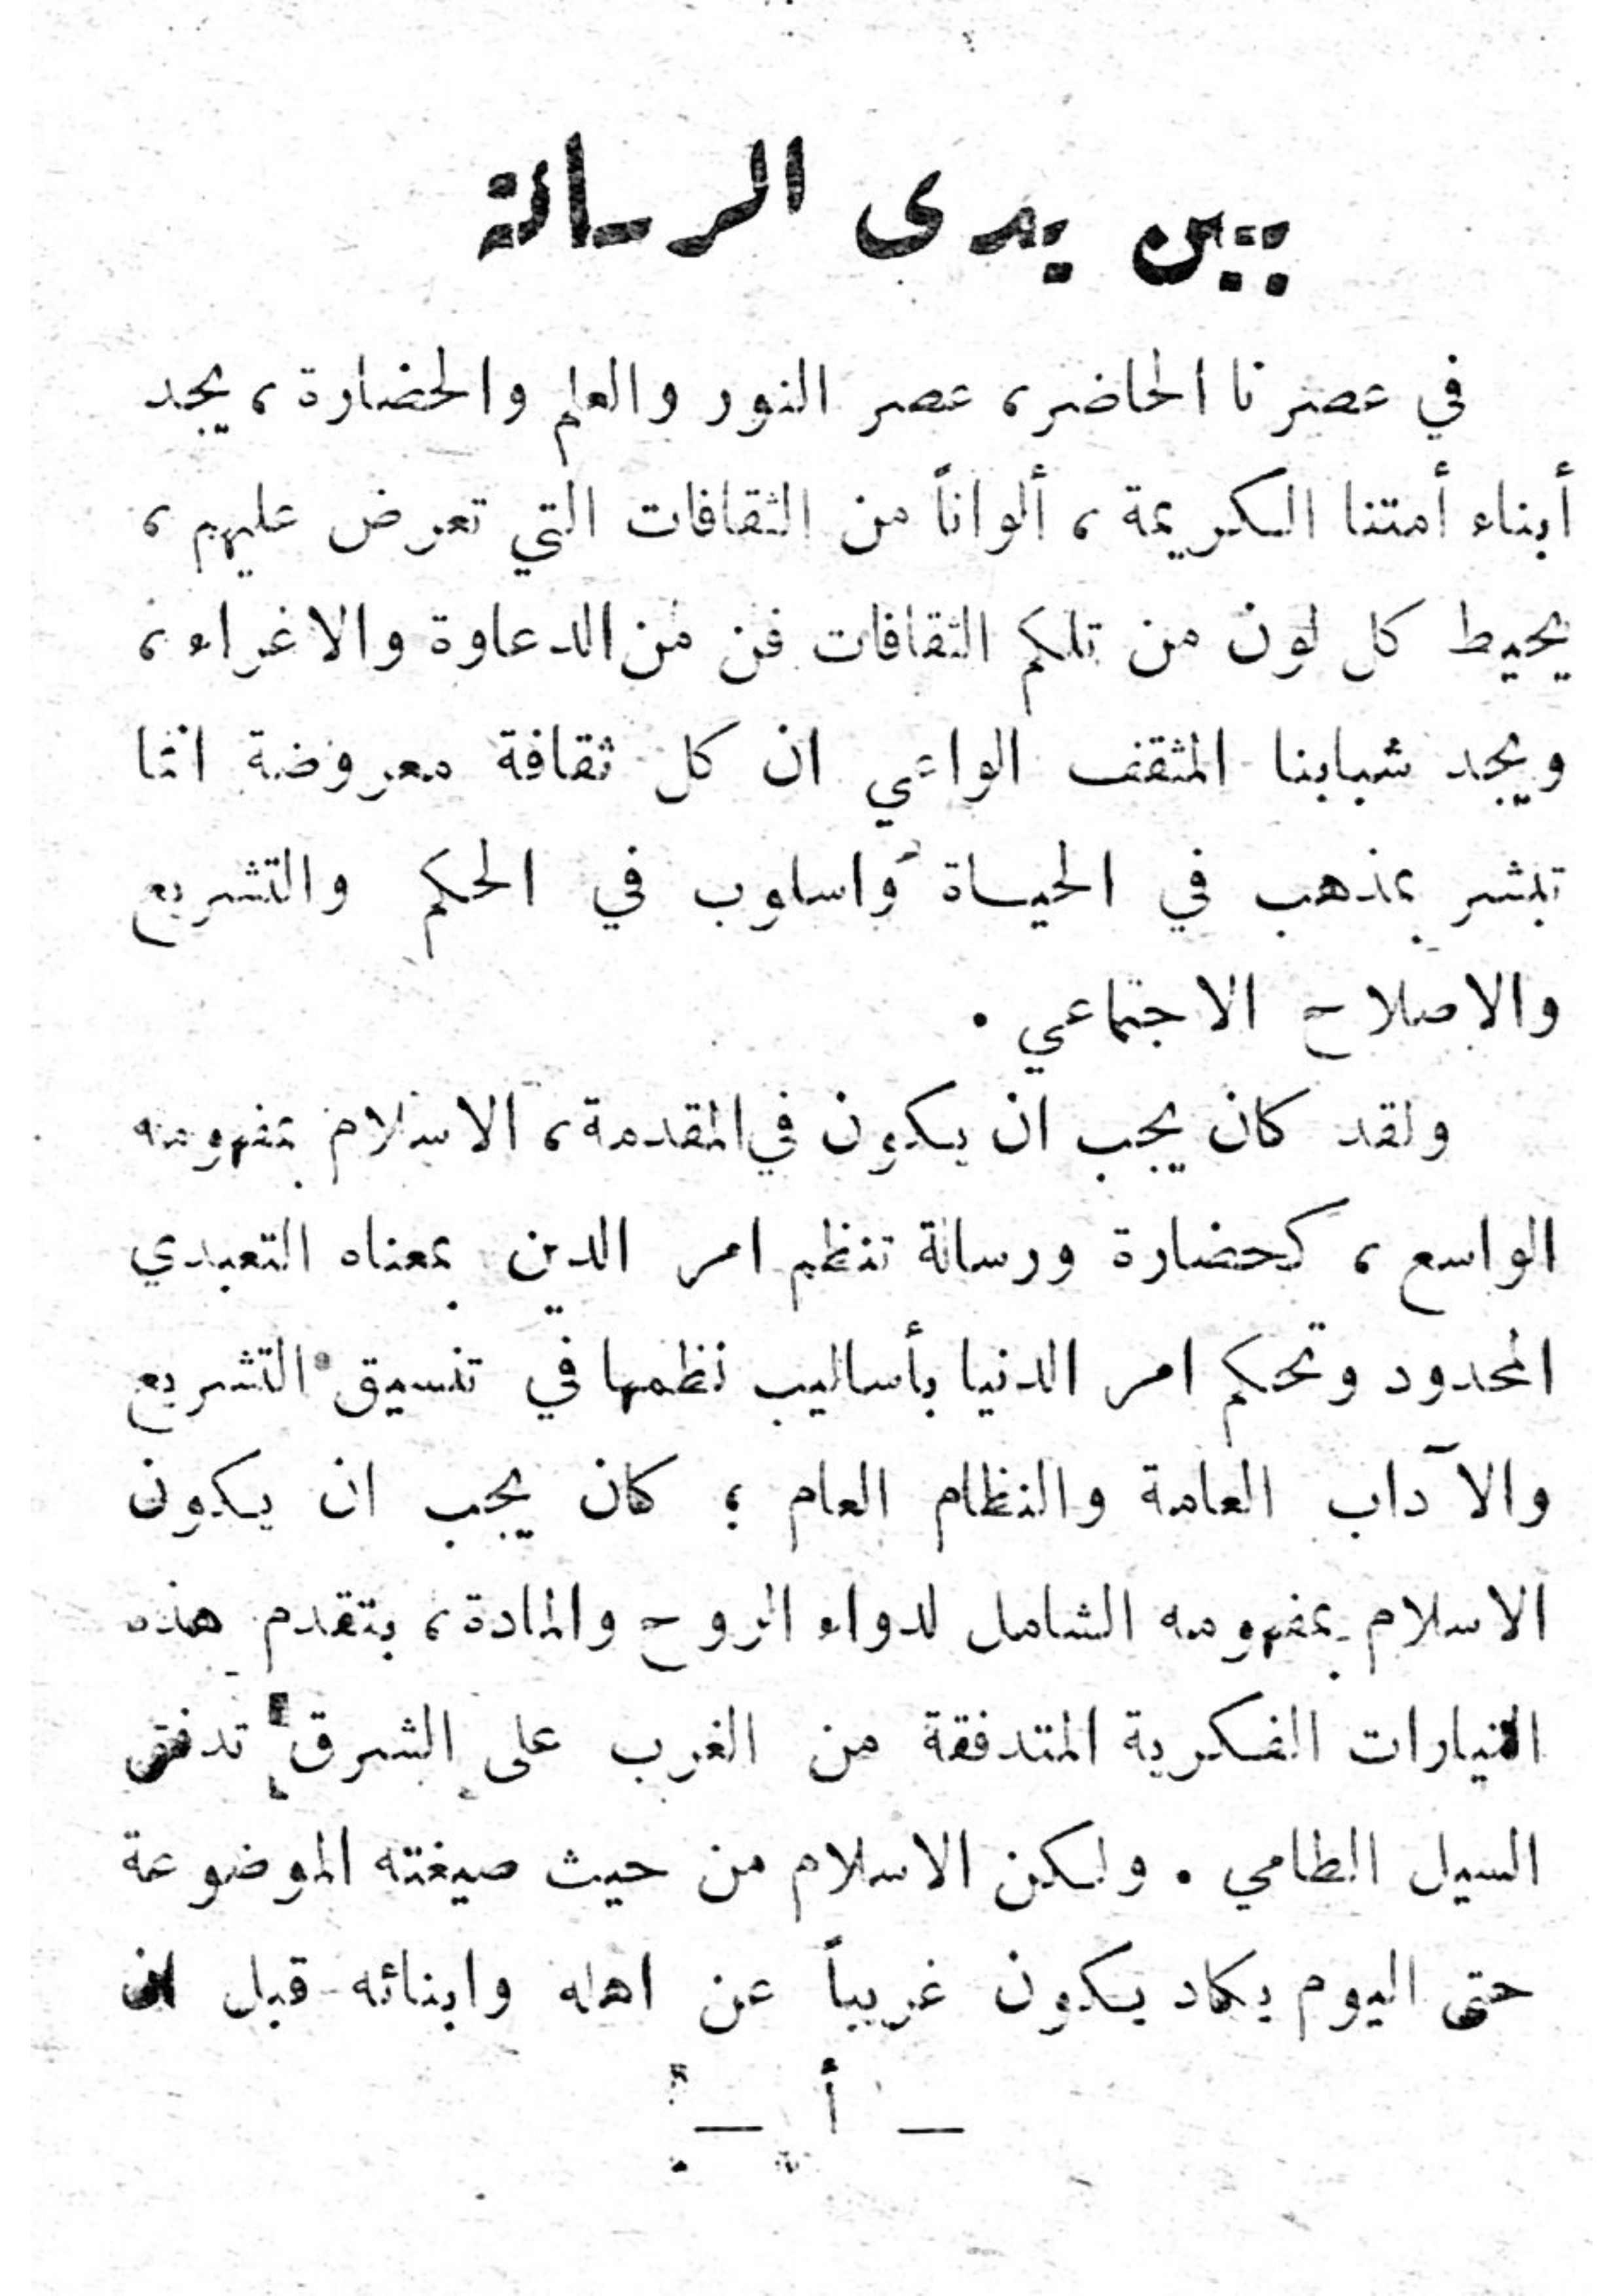 بين يدى الرسالة
في عصرنا الحاضر، عصر النور والعلم والحضارة، يجد
أبناء أمتنا الكريمة، ألواناً من الثقافات التي تعرض عليهم،
يحيط كل لون من تلكم الثقافات فن من الدعاوة والاغراء،
ويجد شبابنا المثقف الواعي ان كل ثقافة معروضة انما
تبشر بمذهب في الحياة واسلوب في الحكم والتشريع
والاصلاح الاجتماعي .
ولقد كان يجب ان يكون في المقدمة، الاسلام بمفهومه
الواسع، كحضارة ورسالة تنظم امر الدين بمعناه التعبدي
المحدود وتحكم امر الدنيا بأساليب نظمها في تنسيق التشريع
والآداب العامة والنظام العام ؛ كان يجب ان يكون
الاسلام بمفهومه الشامل لدواء الروح والمادة، بتقدم هذه
التيارات الفكرية المتدفقة من الغرب على الشرق تدفق
السيل الطامي . ولكن الاسلام من حيث صيغته الموضوعة
حتى اليوم يكاد يكون غريباً عن اهله وابنائه قبل ان
— أ —